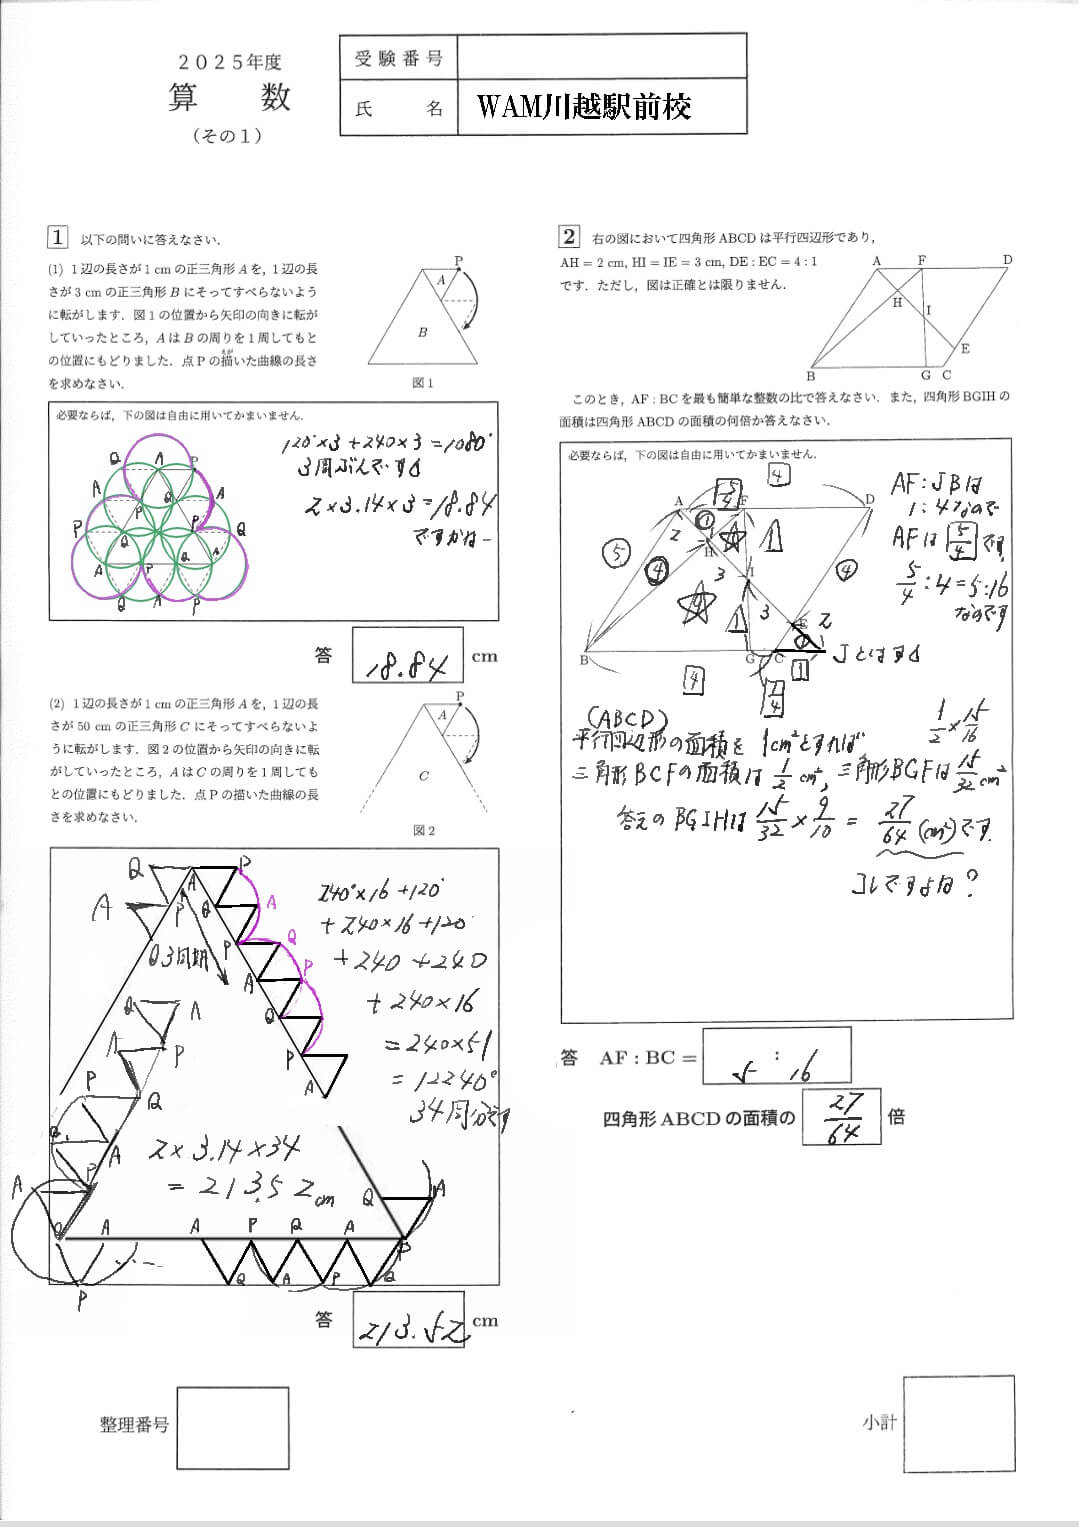 2025年度
算 数
(その1)
受験番号
氏 名 WAM川越駅前校
1 以下の問いに答えなさい.
(1) 1辺の長さが1cmの正三角形Aを, 1辺の長
さが3cmの正三角形Bにそってすべらないよう
に転がします. 図1の位置から矢印の向きに転が
していったところ, AはBの周りを1周してもと
の位置にもどりました. 点Pの描いた曲線の長さ
えが
を求めなさい.
P
A
B
図1
必要ならば, 下の図は自由に用いてかまいません.
120°×3+240×3=1080°
3周ぶんです
2×3.14×3=18.84
ですかねー
Q A P
A Q A
P P P Q
Q Q A
A P
Q A P
答 18.84 cm
(2) 1辺の長さが1cmの正三角形Aを, 1辺の長
さが50cmの正三角形Cにそってすべらないよ
うに転がします. 図2の位置から矢印の向きに転
がしていったところ, AはCの周りを1周しても
との位置にもどりました. 点Pの描いた曲線の長
さを求めなさい.
P
A
C
図2
240°×16+120°
+240×16+120°
+240+240
+240×16
=240×51
=12240°
34周分です
2×3.14×34
=213.52cm
Q A P
A P Q A
P Q
A P
Q
P
A
Q A
A P
P Q
Q A
A P
Q A A P Q A P
Q A P Q
P
Q A
答 213.52 cm
2 右の図において四角形ABCDは平行四辺形であり,
AH = 2 cm, HI = IE = 3 cm, DE : EC = 4 : 1
です. ただし, 図は正確とは限りません.
A F D
H
I
E
B G C
このとき, AF : BCを最も簡単な整数の比で答えなさい. また, 四角形BGIHの
面積は四角形ABCDの面積の何倍か答えなさい.
必要ならば, 下の図は自由に用いてかまいません.
4
5/4
A F D
① 4 1
2 H
⑤ ④ ④
3 I
4 1 3 E 2
①
B G C J とします
4 1/4 1
AF:JBは
1:4なので
AFは 5/4 です,
5/4:4=5:16
なのです
(ABCD)
平行四辺形の面積を 1cm²とすれば
1/2×15/16
三角形BCFの面積は 1/2 cm², 三角形BGFは 15/32 cm²
答えのBGIHは 15/32×9/10 = 27/64 (cm²)です.
コレですよね?
答 AF : BC = 5 : 16
四角形ABCDの面積の 27/64 倍
整理番号
小計